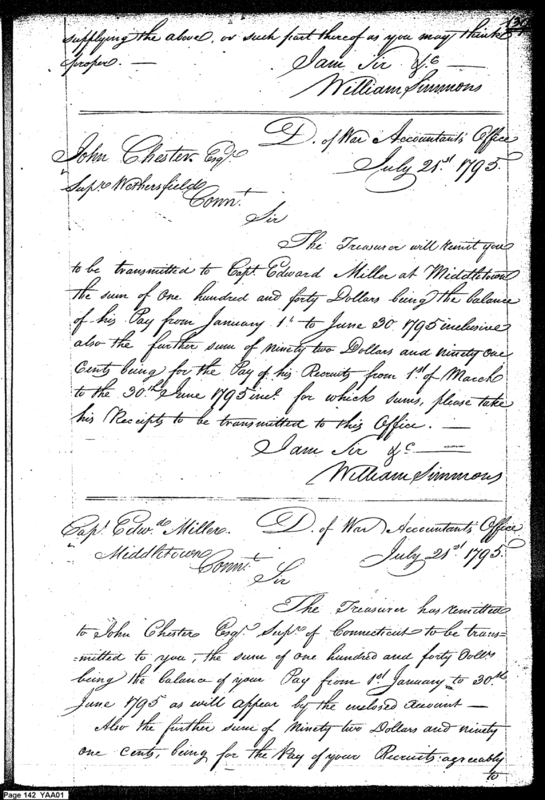 supplying the above, or such part thereof as you may think
proper. —
I am Sir &c —
William Simmons
D. of War Accountants Office
John Chester Esqr.
July 21st 1795.
Supr. Wethersfield
Connt.
Sir
The Treasurer will remit you
to be transmitted to Capt. Edward Miller at Middletown
the sum of One hundred and forty Dollars being the balance
of his Pay from January 1st to June 30 1795 inclusive
also the further sum of ninety two Dollars and ninety one
Cents being for the Pay of his Recruits from 1st of March
to the 30th June 1795 incl. for which sums, please take
his Receipts to be transmitted to this Office. —
I am Sir &c —
William Simmons
Capt. Edwd. Miller.
D. of War Accountants Office
Middletown
July 21st 1795.
Connt.
Sir
The Treasurer has remitted
to John Chester Esqr. Supr. of Connecticut to be trans=
=mitted to you, the sum of one hundred and forty Dolls.
being the balance of your Pay from 1st January to 30th
June 1795 as will appear by the inclosed Account —
Also the further sum of Ninety two Dollars and ninety
one cents, being for the Pay of your Recruits agreeably
to
Page 142 YAA01